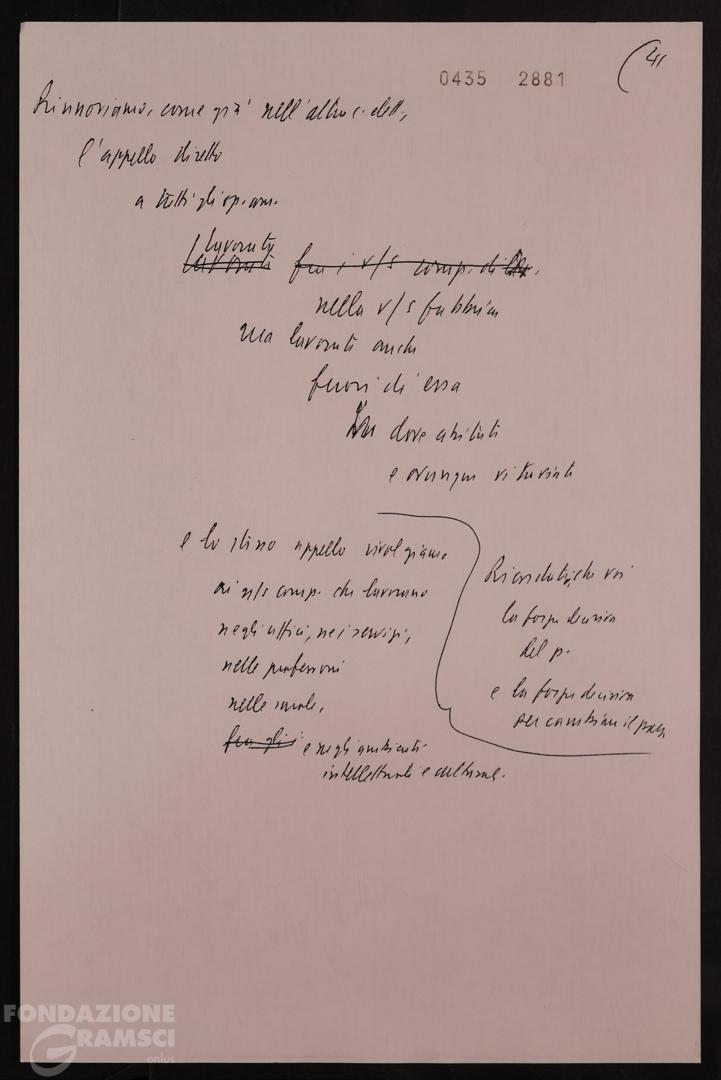 0435 2881
41
Rinnoviamo, come già nell'altro c. elett.,
l'appello diretto
a tutti gli operai.
lavorate
lavorate fra i v/s comp. di
nella v/s fabbrica
ma lavorate anche
fuori di essa
dove abitate
e ovunque vi troviate
e lo stesso appello rivolgiamo
ai n/s comp. che lavorano
negli uffici, nei servizi,
nelle professioni
nelle scuole,
fra gli e negli ambienti
intellettuali e culturali.
Ricordate che voi
la forza decisiva
del p.
e la forza decisiva
per cambiare il paese
FONDAZIONE
GRAMSCI
onlus